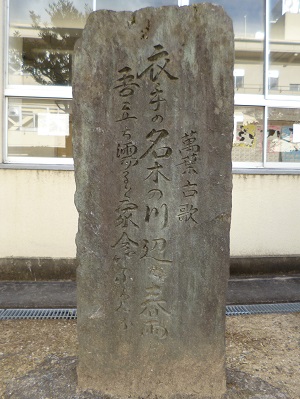 萬葉古歌
衣手の名木の川辺を春雨
吾立ち濡ると家念ふらむか